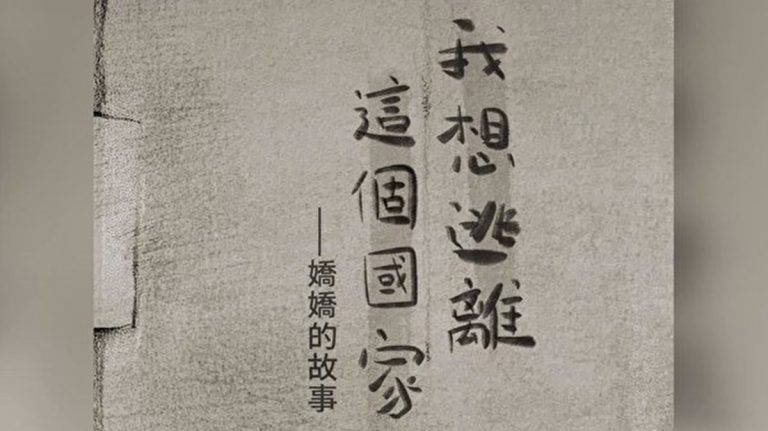 我想逃離
這個國家
——嬌嬌的故事